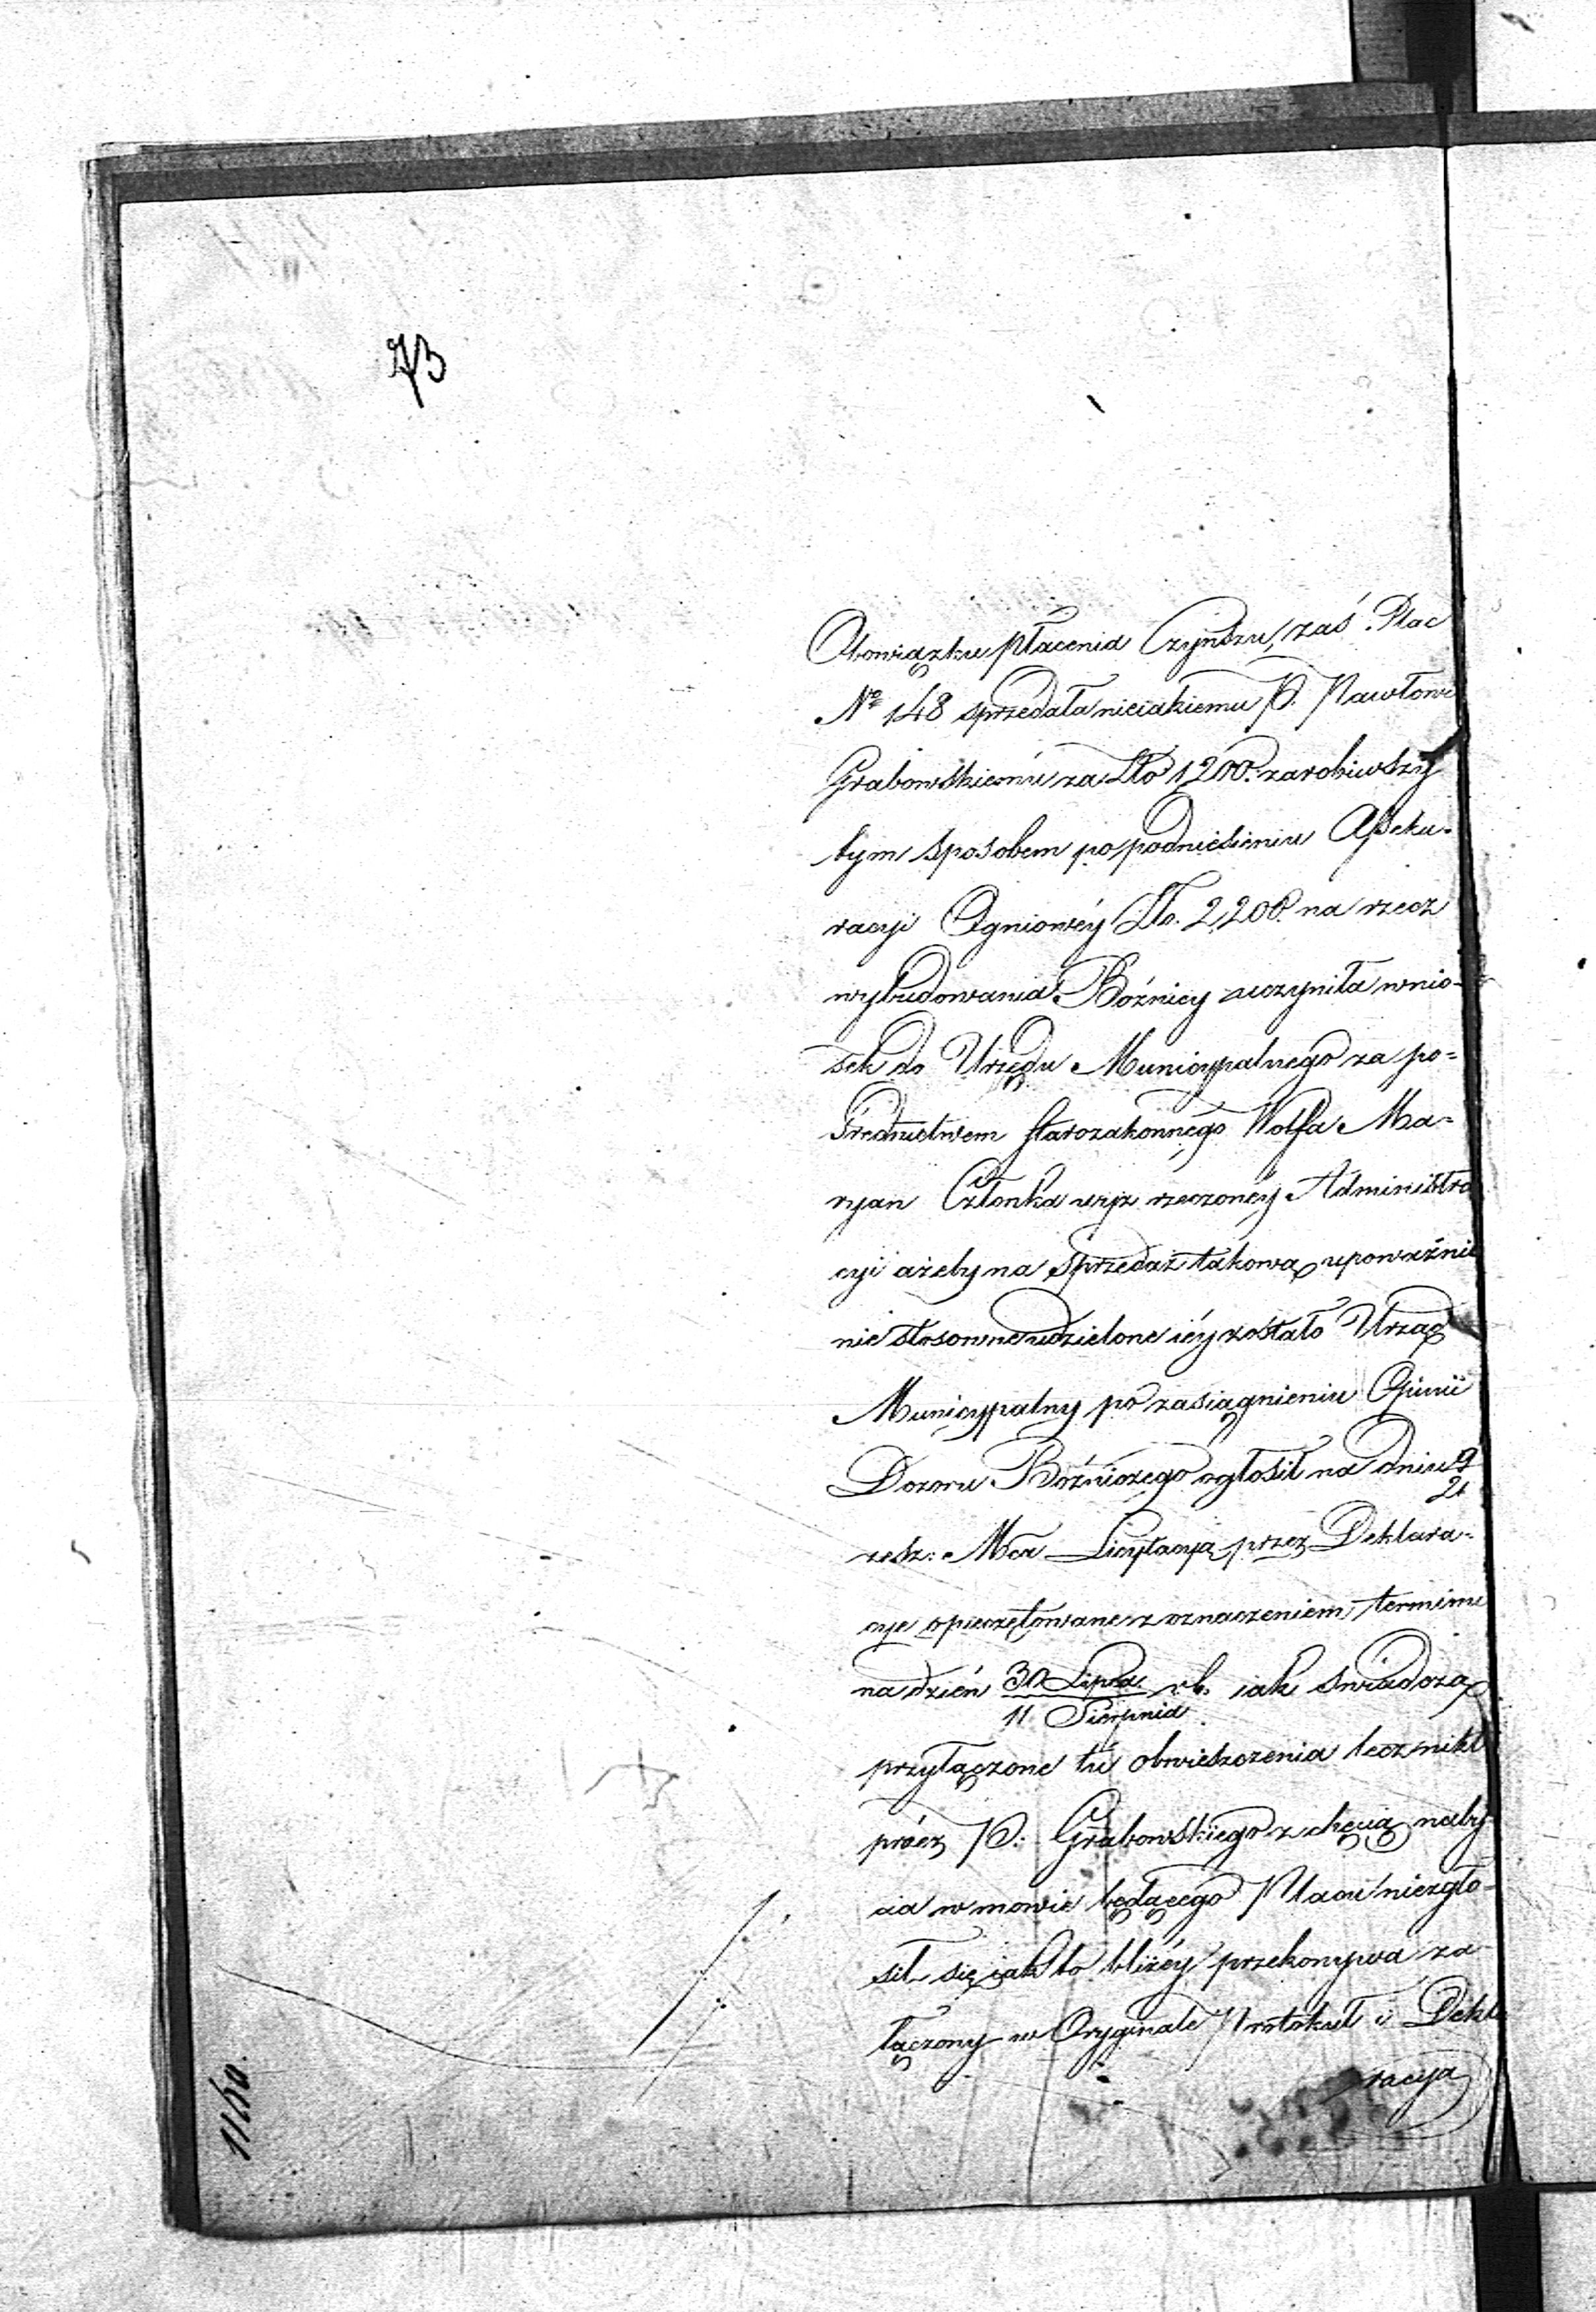 73
Obowiązku płacenia Czynszu, zaś Plac
Nº 148 sprzedała nieiakiemu P. Pawłowi
Grabowskiemu za Złp 1200. zarobiwszy
tym sposobem po podniesieniu Asseku-
racyi Ogniowéy Złp. 2,200. na rzecz
wybudowania Bóżnicy uczyniła wnio-
sek do Urzędu Municypalnego za po-
średnictwem starozakonnégo Wolfa Ma-
ryan Członka wyż rzeczonéy Administra
cyi ażeby na sprzedaż takową upoważnie
nie stosowne udzielone iéy zostało Urząd
Municypalny po zasiągnieniu Opinii
Dozoru Bóźniczego ogłosił na dniu 9
21
zesz: Mca Licytacyą przez Deklara-
cye opieczętowane z oznaczeniem terminu
na dzień 30 Lipca r. b. iak swiadczą
11 Sierpnia
przyłączone tu obwieszczenia lecz nikt
prócz P. Grabowskiego z chęcią naby-
cia w mowie będącego Placu niezgło-
sił się iak to bliżéy przekonywa za-
łączony w Oryginale Protokuł i Dekla
racyja
1140.